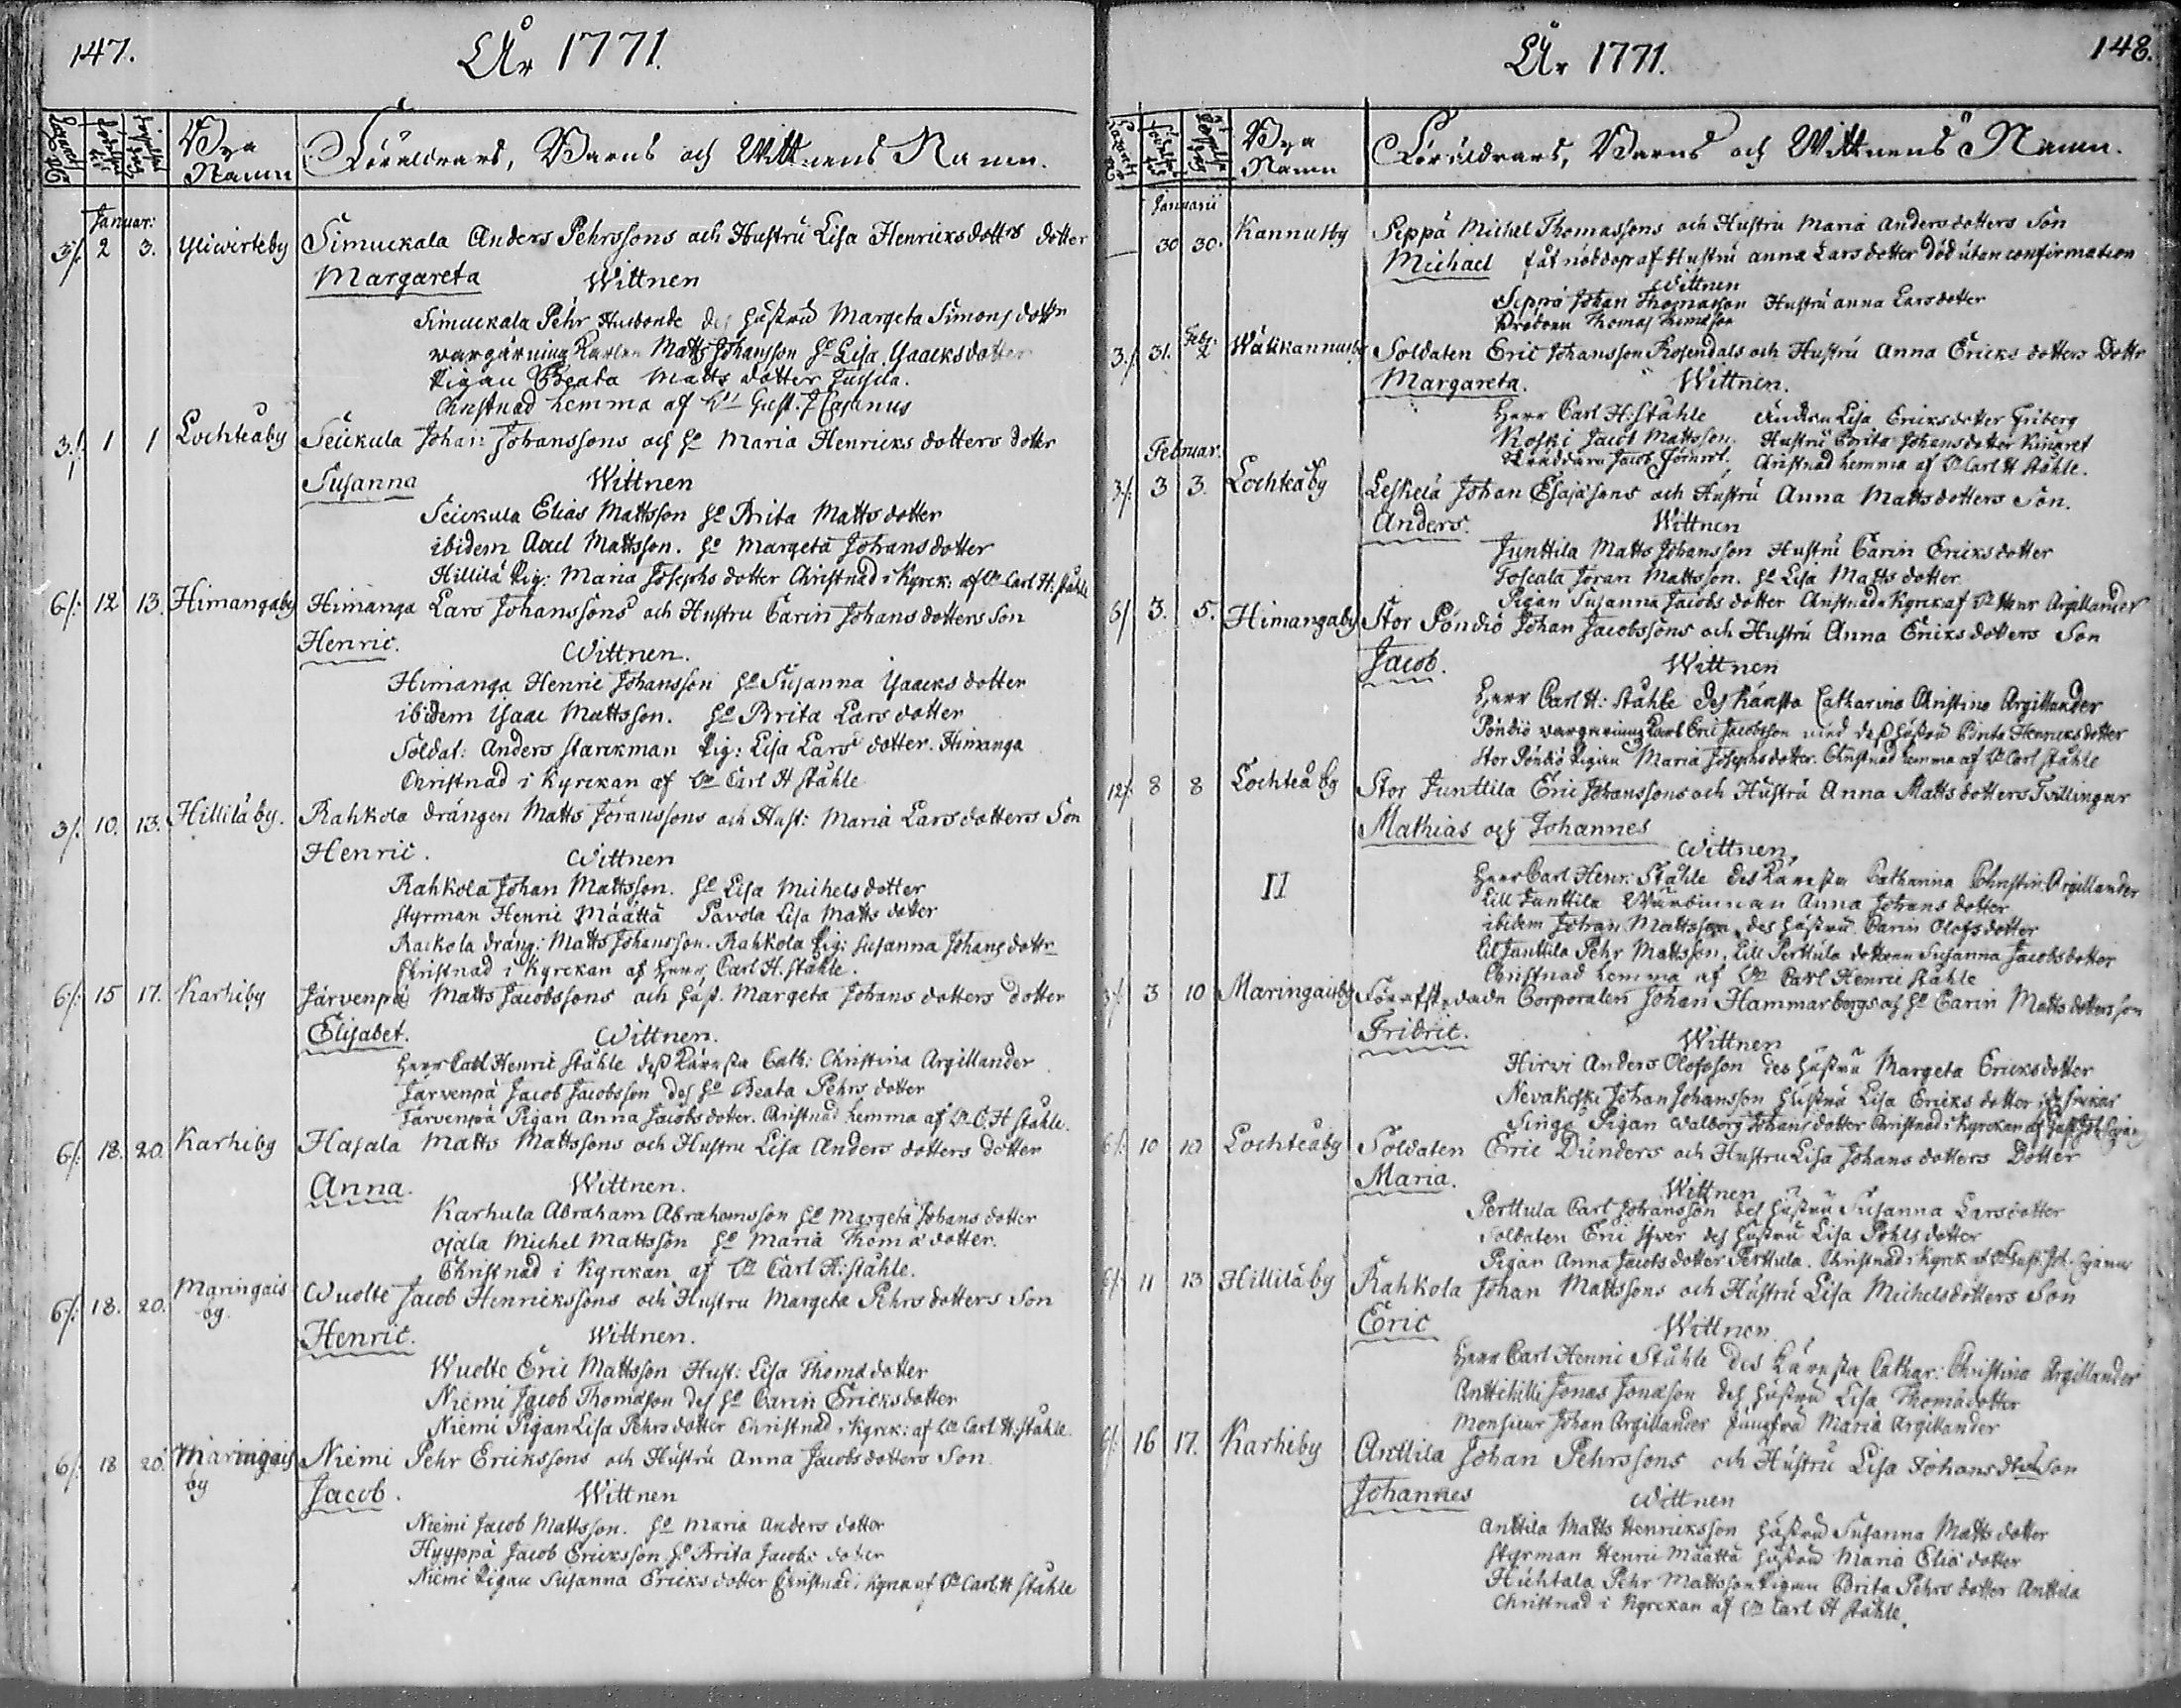 147.
År 1771.
Bya
Namn
Föräldrars, Barns och Wittnens Namn.
Januar:
3/. 2 3. Yliwirteby Simuckala Anders Pehrssons och Hustru Lisa Henricksdotters dotter
Margareta Wittnen
Simuckala Pehr Husbonde des hustru Margeta Simons dottr
wargärning Karlen Matts Johansson Ho Lisa Ysaacksdotter
Pigan Beata Matts dotter Jussila.
Christnad hemma af Vn Gust. J Cajanus
3./. 1 1 Lochteåby Seickula Johan Johanssons och Ho Maria Henricks dotters dotter
Susanna Wittnen
Seickula Elias Mattsson Ho Brita Matts dotter
ibidem Axel Mattsson. Ho Margeta Johans dotter
Hillilä Pig: Maria Josephs dotter Christnad i Kyrck: af Vn Carl H: ståhle
6/. 12 13. Himangaby Himanga Lars Johanssons och Hustru Carin Johans dotters son
Henric. Wittnen.
Himanga Henric Johansson Ho Susanna Ysaacks dotter
ibidem Ysaac Mattsson. Ho Brita Lars dotter
Soldat: Anders starckman Pig: Lisa Lars dotter. Himanga
Christnad i Kyrckan af Vn Carl H ståhle
3/. 10. 13. Hillilä by. Rahkola drängen Matts Jöranssons och Hust: Maria Lars dotters Son
Henric. Wittnen
Rahkola Johan Mattsson. Ho Lisa Michels dotter
styrman Henric Määttä Pavola Lisa Matts dotter
Rackola dräng: Matts Johansson. Rahkola Pig: Susanna Johans dottr
Christnad i Kyrckan af Herr Carl H. ståhle.
6/. 15 17. Karhiby Järvenpä Matts Jacobssons och Hust. Margeta Johans dotters dotter
Elisabet. Wittnen.
Herr Carl Henric ståhle dess Käresta Cath: Christina Argillander
Järvenpä Jacob Jacobsson des Ho Beata Pehrs dotter
Järvenpä Pigan Anna Jacobs dotter. Christnad hemma af Vn C. H ståhle.
6/. 18. 20. Karhiby Hasala Matts Mattssons och Hustru Lisa Anders dotters dotter
Anna. Wittnen.
Karhula Abraham Abrahamsson Ho Margeta Johans dotter
Ojala Michel Mattsson Ho Maria Thoma dotter.
Christnad i Kyrckan af Vn Carl H: ståhle.
6/. 18. 20. Maringais Wuolte Jacob Henrickssons och Hustru Margeta Pehrs dotters Son
by.
Henric. Wittnen.
Wuolte Eric Mattsson Hust: Lisa Thoma dotter
Niemi Jacob Thomasson des Ho Carin Ericks dotter
Niemi Pigan Lisa Pehrs dotter Christnad i Kyrck: af Vn Carl H: ståhle.
6/. 18 20. Maringais Niemi Pehr Erickssons och Hustru Anna Jacobs dotters Son
by
Jacob. Wittnen
Niemi Jacob Mattsson. Ho Maria Anders dotter
Hyyppä Jacob Ericksson Ho Brita Jacobs dotter
Niemi Pigan Susanna Ericks dotter Christnad i Kyrck af Vn Carl H ståhle
148.
År 1771.
Bya
Namn
Föräldrars, Barns och Wittnens Namn.
Januarii
30 30. Kannusby Seppä Michel Thomassons och Hustru Maria Andersdotters Son
Michael fåt nöddop af Hustru anna Larsdotter död utan confirmation
Wittnen
Seppä Johan Thomasson Hustru anna Larsdotter
Brodern Thomas Thomasson
3./. 31. Febr. 2 Wälikannusby Soldaten Eric Johansson Rosendals och Hustru Anna Ericks dotters Dottr
Margareta. Wittnen.
Herr Carl H: ståhle Enckan Lisa Ericksdotter Friberg
Koski Jacob Mattsson. Hustru Brita Johansdotter Kinaret
Skräddarn Jacob Christnad hemma af Vn Carl H ståhle.
Februar.
3/. 3 3. Lochteåby Leskelä Johan Esajasons och Hustru Anna Mattsdotters Son.
Anders. Wittnen
Junttila Matts Johansson Hustru Carin Ericksdotter
Toscala Jöran Mattsson. Ho Lisa Matts dotter
Pigan Susanna Jacobs dotter Christnad i Kyrck af Vn Henr Argillander
6/ 3. 5. Himangaby Stor Pöndiö Johan Jacobssons och Hustru Anna Ericks dotters Son
Jacob. Wittnen
Herr Carl H: ståhle Des Käresta Catharina Christina Argillander
Pöndiö wargärning Karl Eric Jacobsson med dess hustru Brita Henricksdotter
Stor Pöndiö Pigan Maria Josephsdotter. Christnad hemma af Vn Carl ståhle
12/. 8 8 Lochteå by Stor Junttila Eric Johanssons och Hustru Anna Matts dotters Tvillingar
Mathias och Johannes
Wittnen
II Herr Carl Henr: Ståhle des Käresta Catharina Christin: Argillander
Lill Junttila Wärdinnan Anna Johans dotter
ibidem Johan Mattsson des hustru Carin Olofsdotter
Lil Junttila Pehr Mattsson. Lill Perttula dottern Susanna Jacobsdotter
Christnad hemma af Vn Carl Henric ståhle
3/. 3 10 Maringaisby Corporalen Johan Hammarbergs och Ho Carin Matts dotters son
Fridric. Wittnen
Hirvi Anders Olofsson des hustru Margeta Ericksdotter
Nevakoski Johan Johansson Hustru Lisa Ericks dotter
Singo Pigan Walborg Johans dotter Christnad i Kyrckan af
6/. 10 10 Lochteåby Soldaten Eric Dunders och Hustru Lisa Johans dotters Dotter
Maria. Wittnen
Perttula Carl Johansson des hustru Susanna Larsdotter
Soldaten Eric Ifver des hustru Lisa Påhls dotter
Pigan Anna Jacobs dotter Perttula. Christnad i Kyrck af Vn Gust. Joh. Cajanus
6/. 11 13 Hillilä by Rahkola Johan Mattssons och Hustru Lisa Michelsdotters Son
Eric Wittnen
Herr Carl Henric Ståhle des Käresta Cathar: Christina Argillander
Anttihilli Jonas Jonasson des hustru Lisa Thomadotter
Monsieur Johan Argillander Jungfru Maria Argillander
6/. 16 17. Karhiby Anttila Johan Pehrssons och Hustru Lisa Johans dtrs Son
Johannes Wittnen
Anttila Matts Henricksson hustru Susanna Matts dotter
Styrman Henric Määttä hustru Maria Elia dotter
Huhtala Pehr Mattsson Pigan Brita Pehrs dotter Anttila
Christnad i Kyrckan af Vn Carl H ståhle.